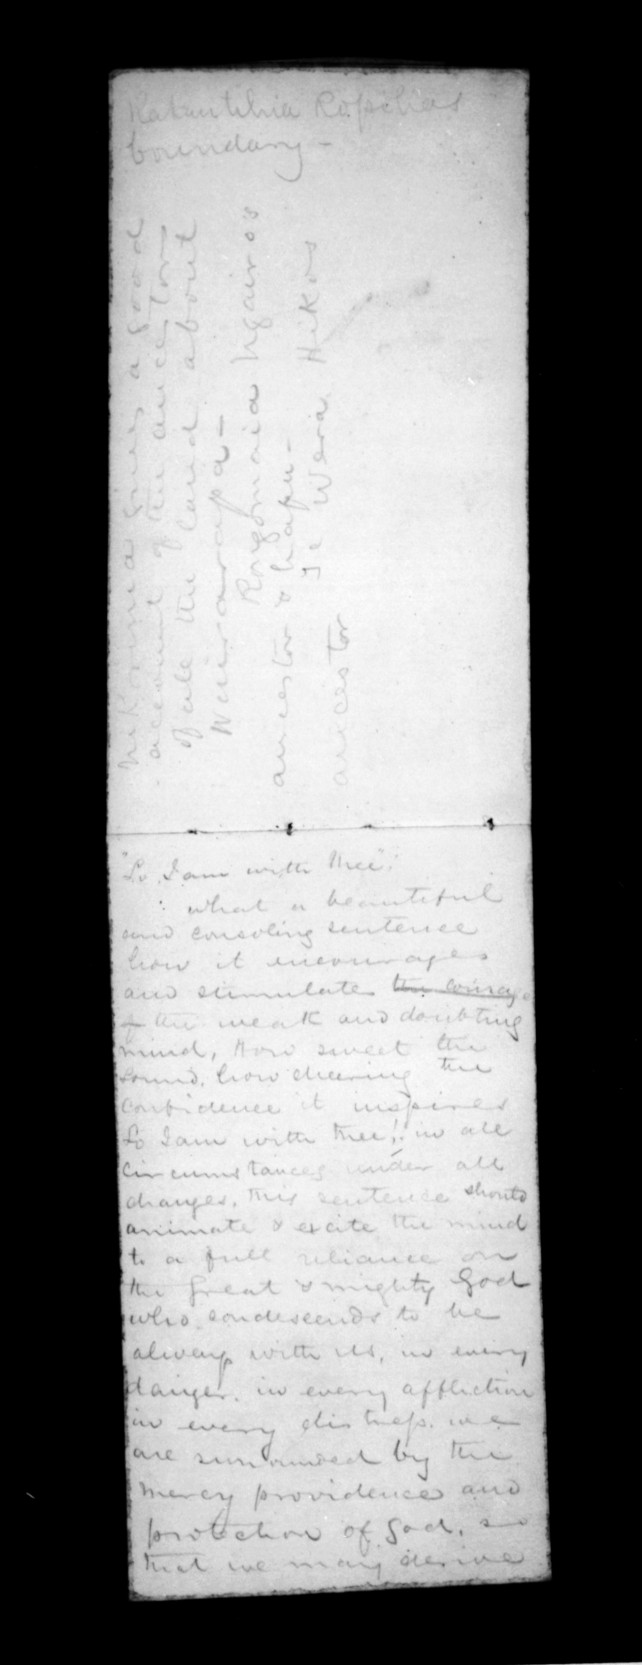 boundary -
gives a good
account of the ancestors
of all the land about
Wairarapa -
Rongomaia Ngairo's
ancestor & hapu -
Te Wera Hiko's
ancestor
"Lo, I am with thee".
what a beautiful
and consoling sentence
how it encourages
and stimulates the courage
of the weak and doubting
mind, How sweet the
sound, how cheering the
confidence it inspires
Lo I am with thee,! in all
circumstances under all
changes, this sentence should
animate & excite the mind
to a full reliance on
the great & mighty God
who condescends to be
always with us, in every
danger, in every affliction
in every distress. we
are surrounded by the
mercy providence and
protection of God, so
that we may derive